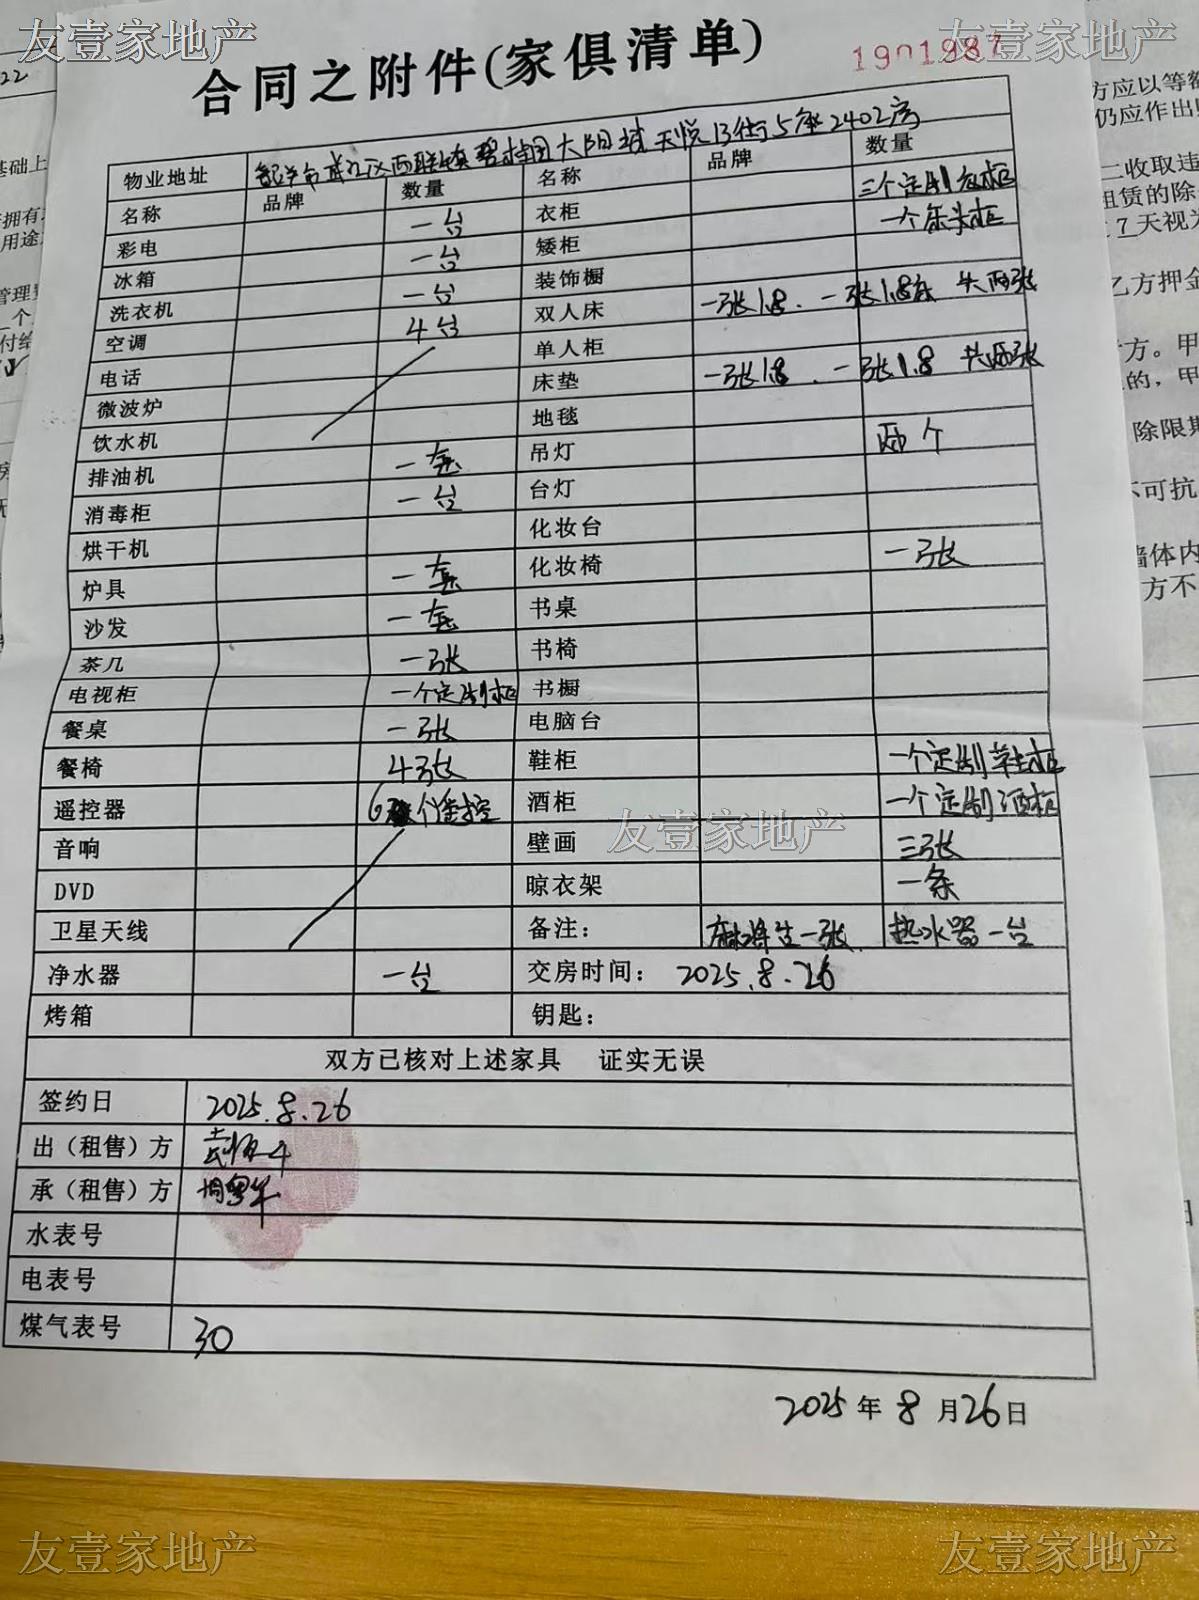 友壹家地产 友壹家地产
合同之附件(家俱清单)
1901987
物业地址 韶关市武江区西联镇碧桂园太阳城天悦13街5座2402房
名称 品牌 数量 名称 品牌 数量
彩电 一台 衣柜 三个定制衣柜
冰箱 一台 矮柜 一个床头柜
洗衣机 一台 装饰橱
空调 4台 双人床 一张1.8. 一张1.8床 共两张
电话 单人柜
微波炉 床垫 一张1.8. 一张1.8 共两张
饮水机 地毯
排油机 一套 吊灯 两个
消毒柜 一台 台灯
烘干机 化妆台
炉具 一套 化妆椅 一张
沙发 一套 书桌
茶几 一张 书椅
电视柜 一个定制柜 书橱
餐桌 一张 电脑台
餐椅 4张 鞋柜 一个定制鞋柜
遥控器 6个遥控 酒柜 一个定制酒柜
音响 壁画 三张
DVD 晾衣架 一条
卫星天线 备注: 一张 热水器一台
净水器 一台 交房时间: 2025.8.26
烤箱 钥匙:
友壹家地产
双方已核对上述家具 证实无误
签约日 2025.8.26
出(租售)方
承(租售)方
水表号
电表号
煤气表号 30
2025年8月26日
友壹家地产 友壹家地产
22
基础上
管理费
付给
方应以等额
仍应作出
二收取违
租赁的除
7天视为
乙方押金
方。甲
的,甲
除限期
不可抗
墙体内
方不